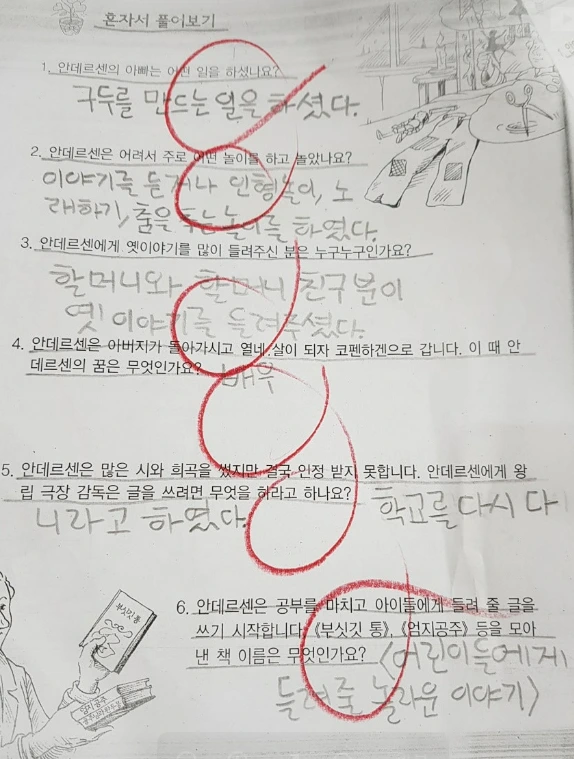 혼자서 풀어보기
1. 안데르센의 아빠는 어떤 일을 하셨나요?
구두를 만드는 일을 하셨다.
2. 안데르센은 어려서 주로 어떤 놀이를 하고 놀았나요?
이야기를 듣거나 인형놀이, 노
래하기, 춤을 추는 놀이를 하였다.
3. 안데르센에게 옛이야기를 많이 들려주신 분은 누구누구인가요?
할머니와 할머니 친구분이
옛 이야기를 들려주셨다.
4. 안데르센은 아버지가 돌아가시고 열네 살이 되자 코펜하겐으로 갑니다. 이 때 안
데르센의 꿈은 무엇인가요? 배우
5. 안데르센은 많은 시와 희곡을 썼지만 결국 인정 받지 못합니다. 안데르센에게 왕
립 극장 감독은 글을 쓰려면 무엇을 하라고 하나요? 학교를 다시 다
니라고 하였다.
6. 안데르센은 공부를 마치고 아이들에게 들려 줄 글을
쓰기 시작합니다. 〈부싯깃 통〉, 〈엄지공주〉 등을 모아
낸 책 이름은 무엇인가요? 〈어린이들에게
들려줄 놀라운 이야기〉
부싯깃 통
엄지공주